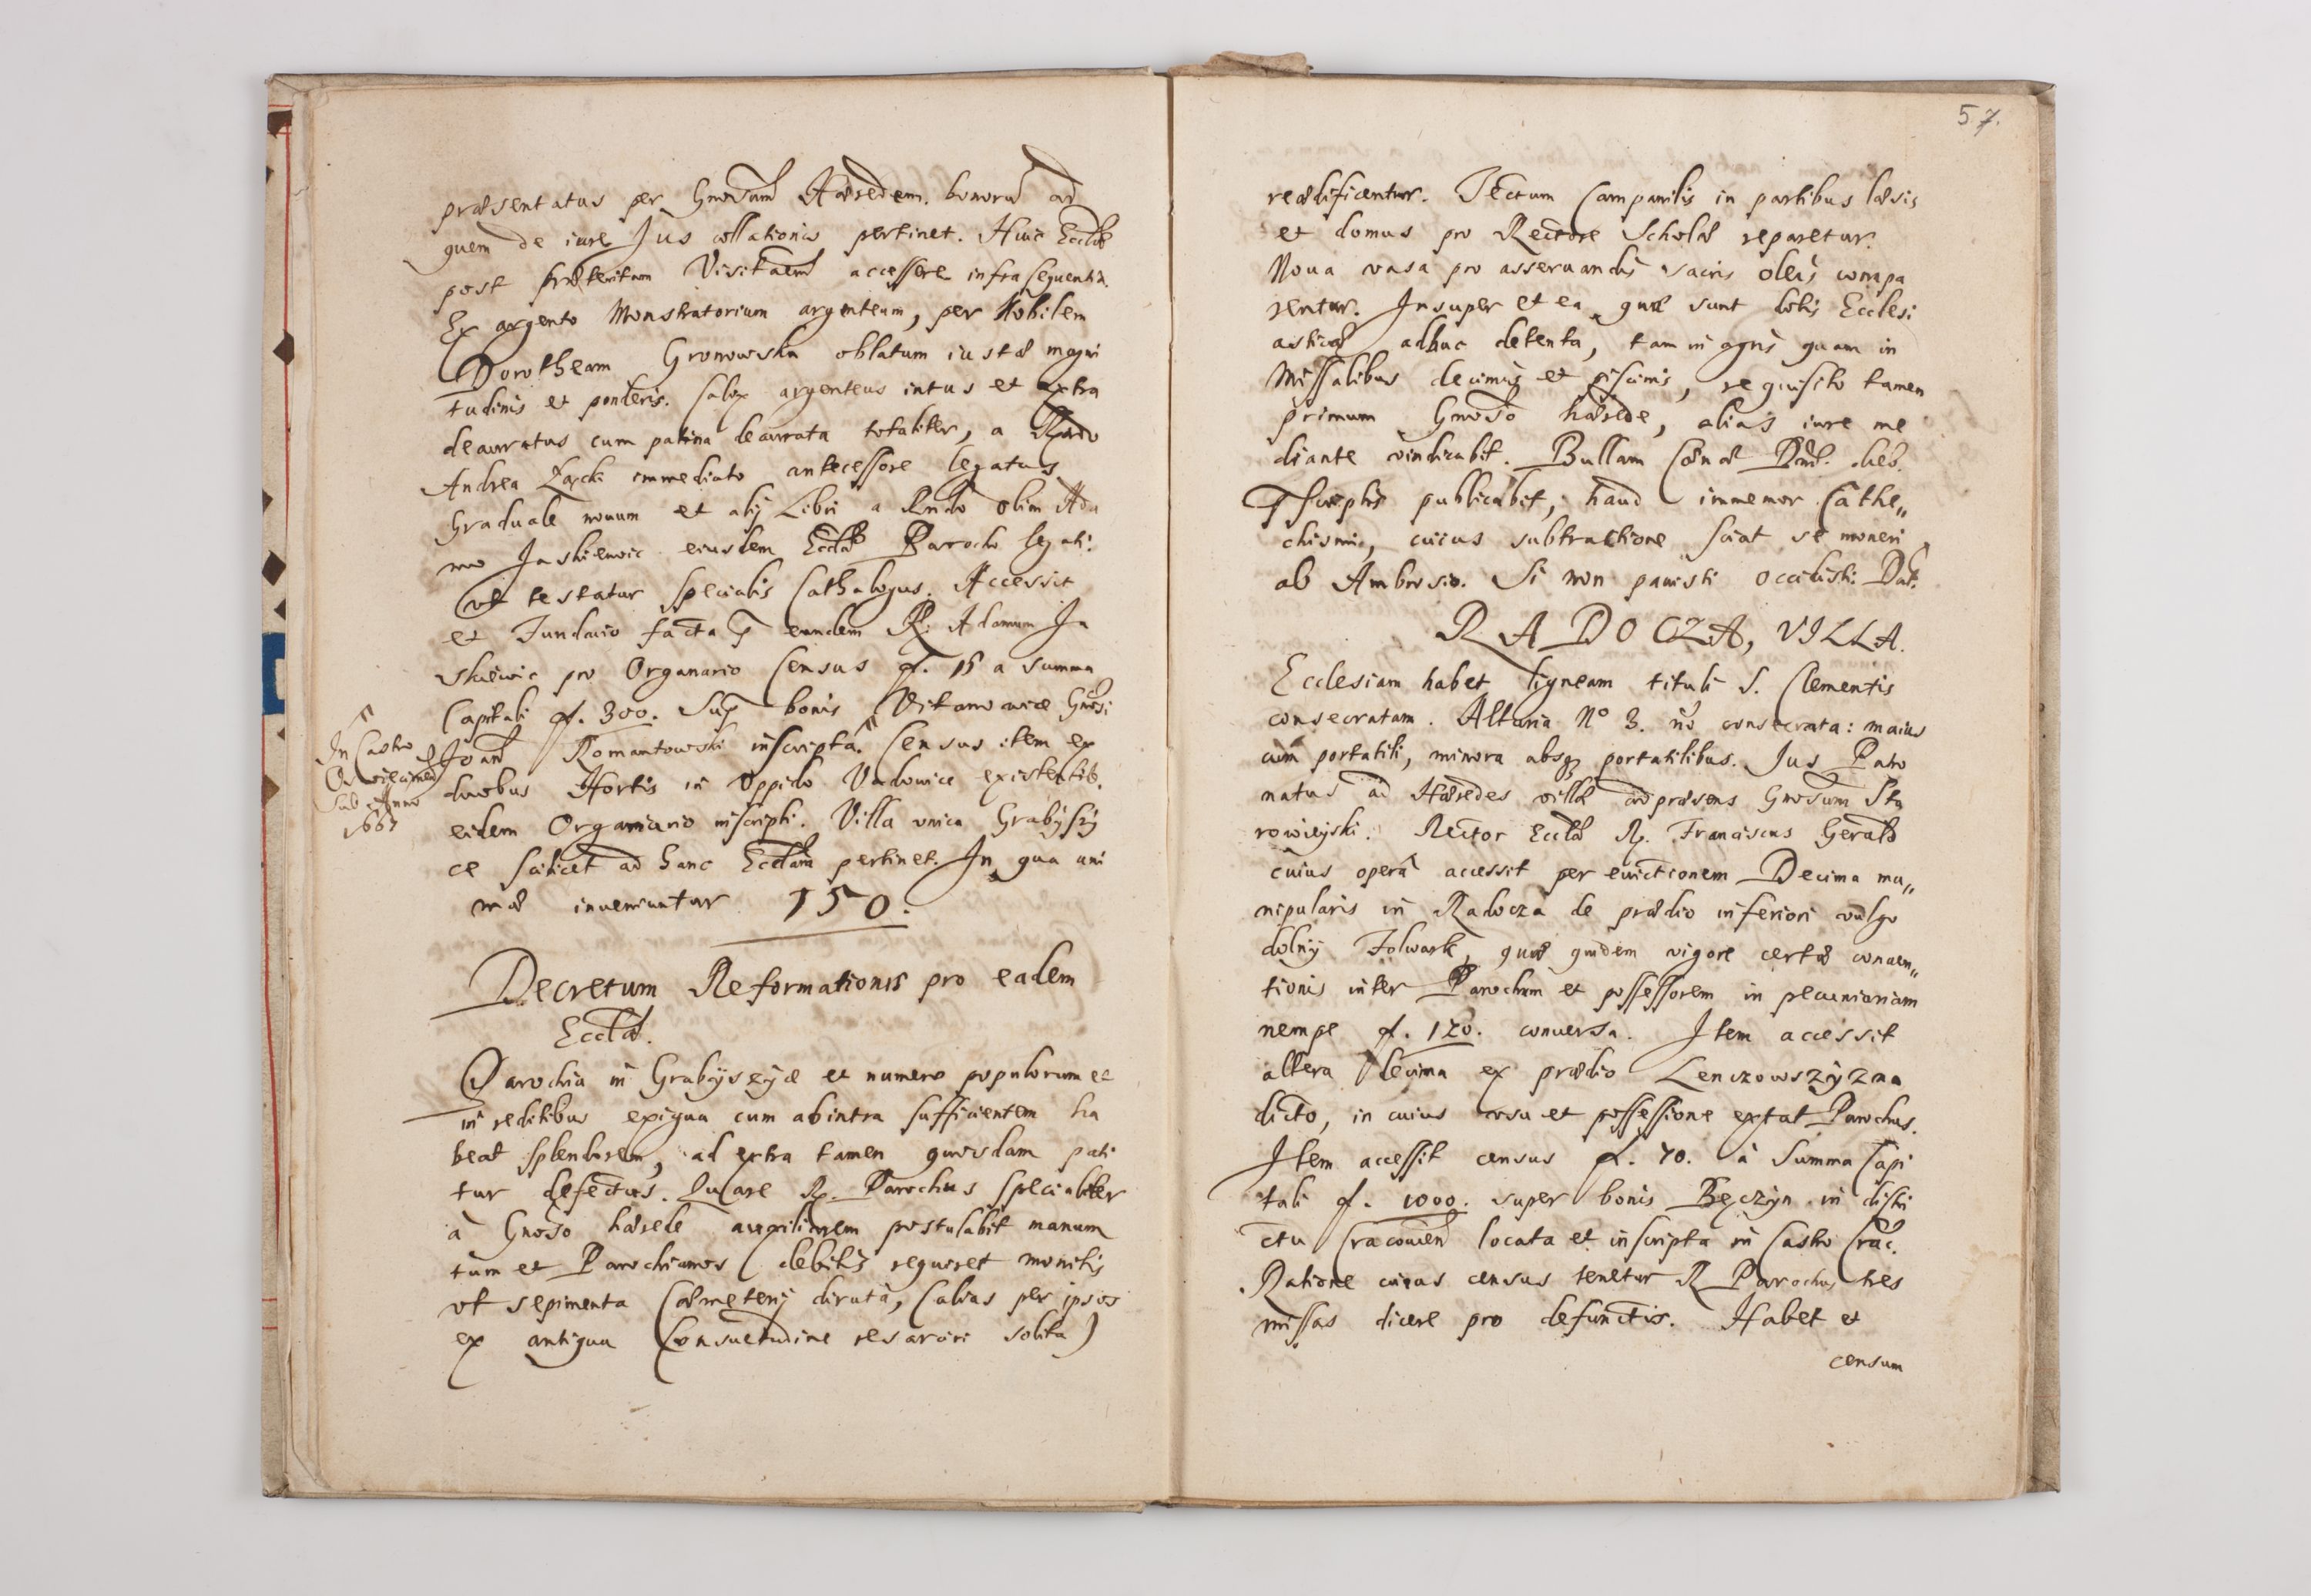 præsentatus per Gnosum Hæredem bonorū ad
quem de iure Jus collationis pertinet. Huic Eccłæ
post præteritam Visitāem accessere infrasequentia.
Ex argento Monstratorium argenteum, per Nobilem
Dorotheam Gronowska oblatum iustæ magni
tudinis et ponderis. Calix argenteus intus et extra
deauratus cum patina deaurata totaliter, a Rndo
Andrea immediato antecessore legatus
Graduale nouum et alij Libri a Rndo olim Ada
mo Jaskiewic eiusdem Eccłæ Parocho legati.
vt testatur specialis Cathalogus. Accessit
et Fundaio facta ꝑ eundem R. Adamum Ja
skiewic pro Organario Census fl. 15 a summa
Capitali fl. 300. Sup bonis Witanowice Gnosi
Joan̄ Romantowski inscripta. Census item ex
duobus Hortis in Oppido Vadowice existētib.
eidem Organario inscripti. Villa vnica Grabÿszÿ
ce scilicet ad hanc Eccłam pertinet. In qua ani
mæ inueniuntur 150.
In Castro
Oswiecimen
sub Anno
1667
Decretum Reformationis pro eadem
Eccłæ.
Parochia in Grabÿszÿce et numero populorum et
in reditibus exigua cum abintra sufficientem ha
beat splendorem, ad extra tamen quosdam pati
tur defectus. Quare R. Parochus specialiter
à Gnoso hærede auxiliarem postulabit manum
tum et Parochianos debitis requiret monitis
vt sepimenta Cæmeterij diruta, (alias per ipsos
ex antiqua Consuetudine resarciri solita)
57.
reædificentur. Tectum Campanilis in partibus læsis
et domus pro Rectore Scholæ reparetur.
Noua vasa pro asseruandis sacris oleis compa
rentur. Insuper et ea quæ sunt dotis Ecclesi
asticæ adhuc detenta, tam in agris quam in
Missalibus decimis et piscinis, requisito tamen
primum Gnoso hærede, alias iure me
diante vindicabit. Bullam Cænæ Dni. dieb.
ꝑscriptis publicabit, haud immemor Cathe„
chismi, cuius subtractione sciat se moneri
ab Ambrosio. Si non pauisti occidisti. Dat.
RADOCZA, VILLA.
Ecclesiam habet ligneam tituli S. Clementis
consecratam. Altaria No 3. nō consecrata: maius
cum portatili, minora absq; portatilibus. Jus Patro
natus ad Hæredes villæ ad præsens Gnosum Sta
rowieÿski. Rector Eccłæ R. Franciscus Gerald
cuius operâ accessit per euictionem Decima ma„
nipularis in Radocza de prædio inferiori vulgo
dolnÿ Folwark, quæ quidem vigore certæ conuen„
tionis inter Parochum et possessorem in pecuniariam
nempe fl. 120. conuersa. Item accessit
altera decima ex prædio Lenczowszÿzna
dicto, in cuius vsu et possessione extat Parochus.
Item accessit census fl. 70. à Summa Capi
tali fl. 1000. super bonis Bęczÿn in distri
ctu Cracouien̄ locata et inscripta in Castro Crac.
Ratione cuius census tenetur R Parochus tres
missas dicere pro defunctis. Habet et
censum